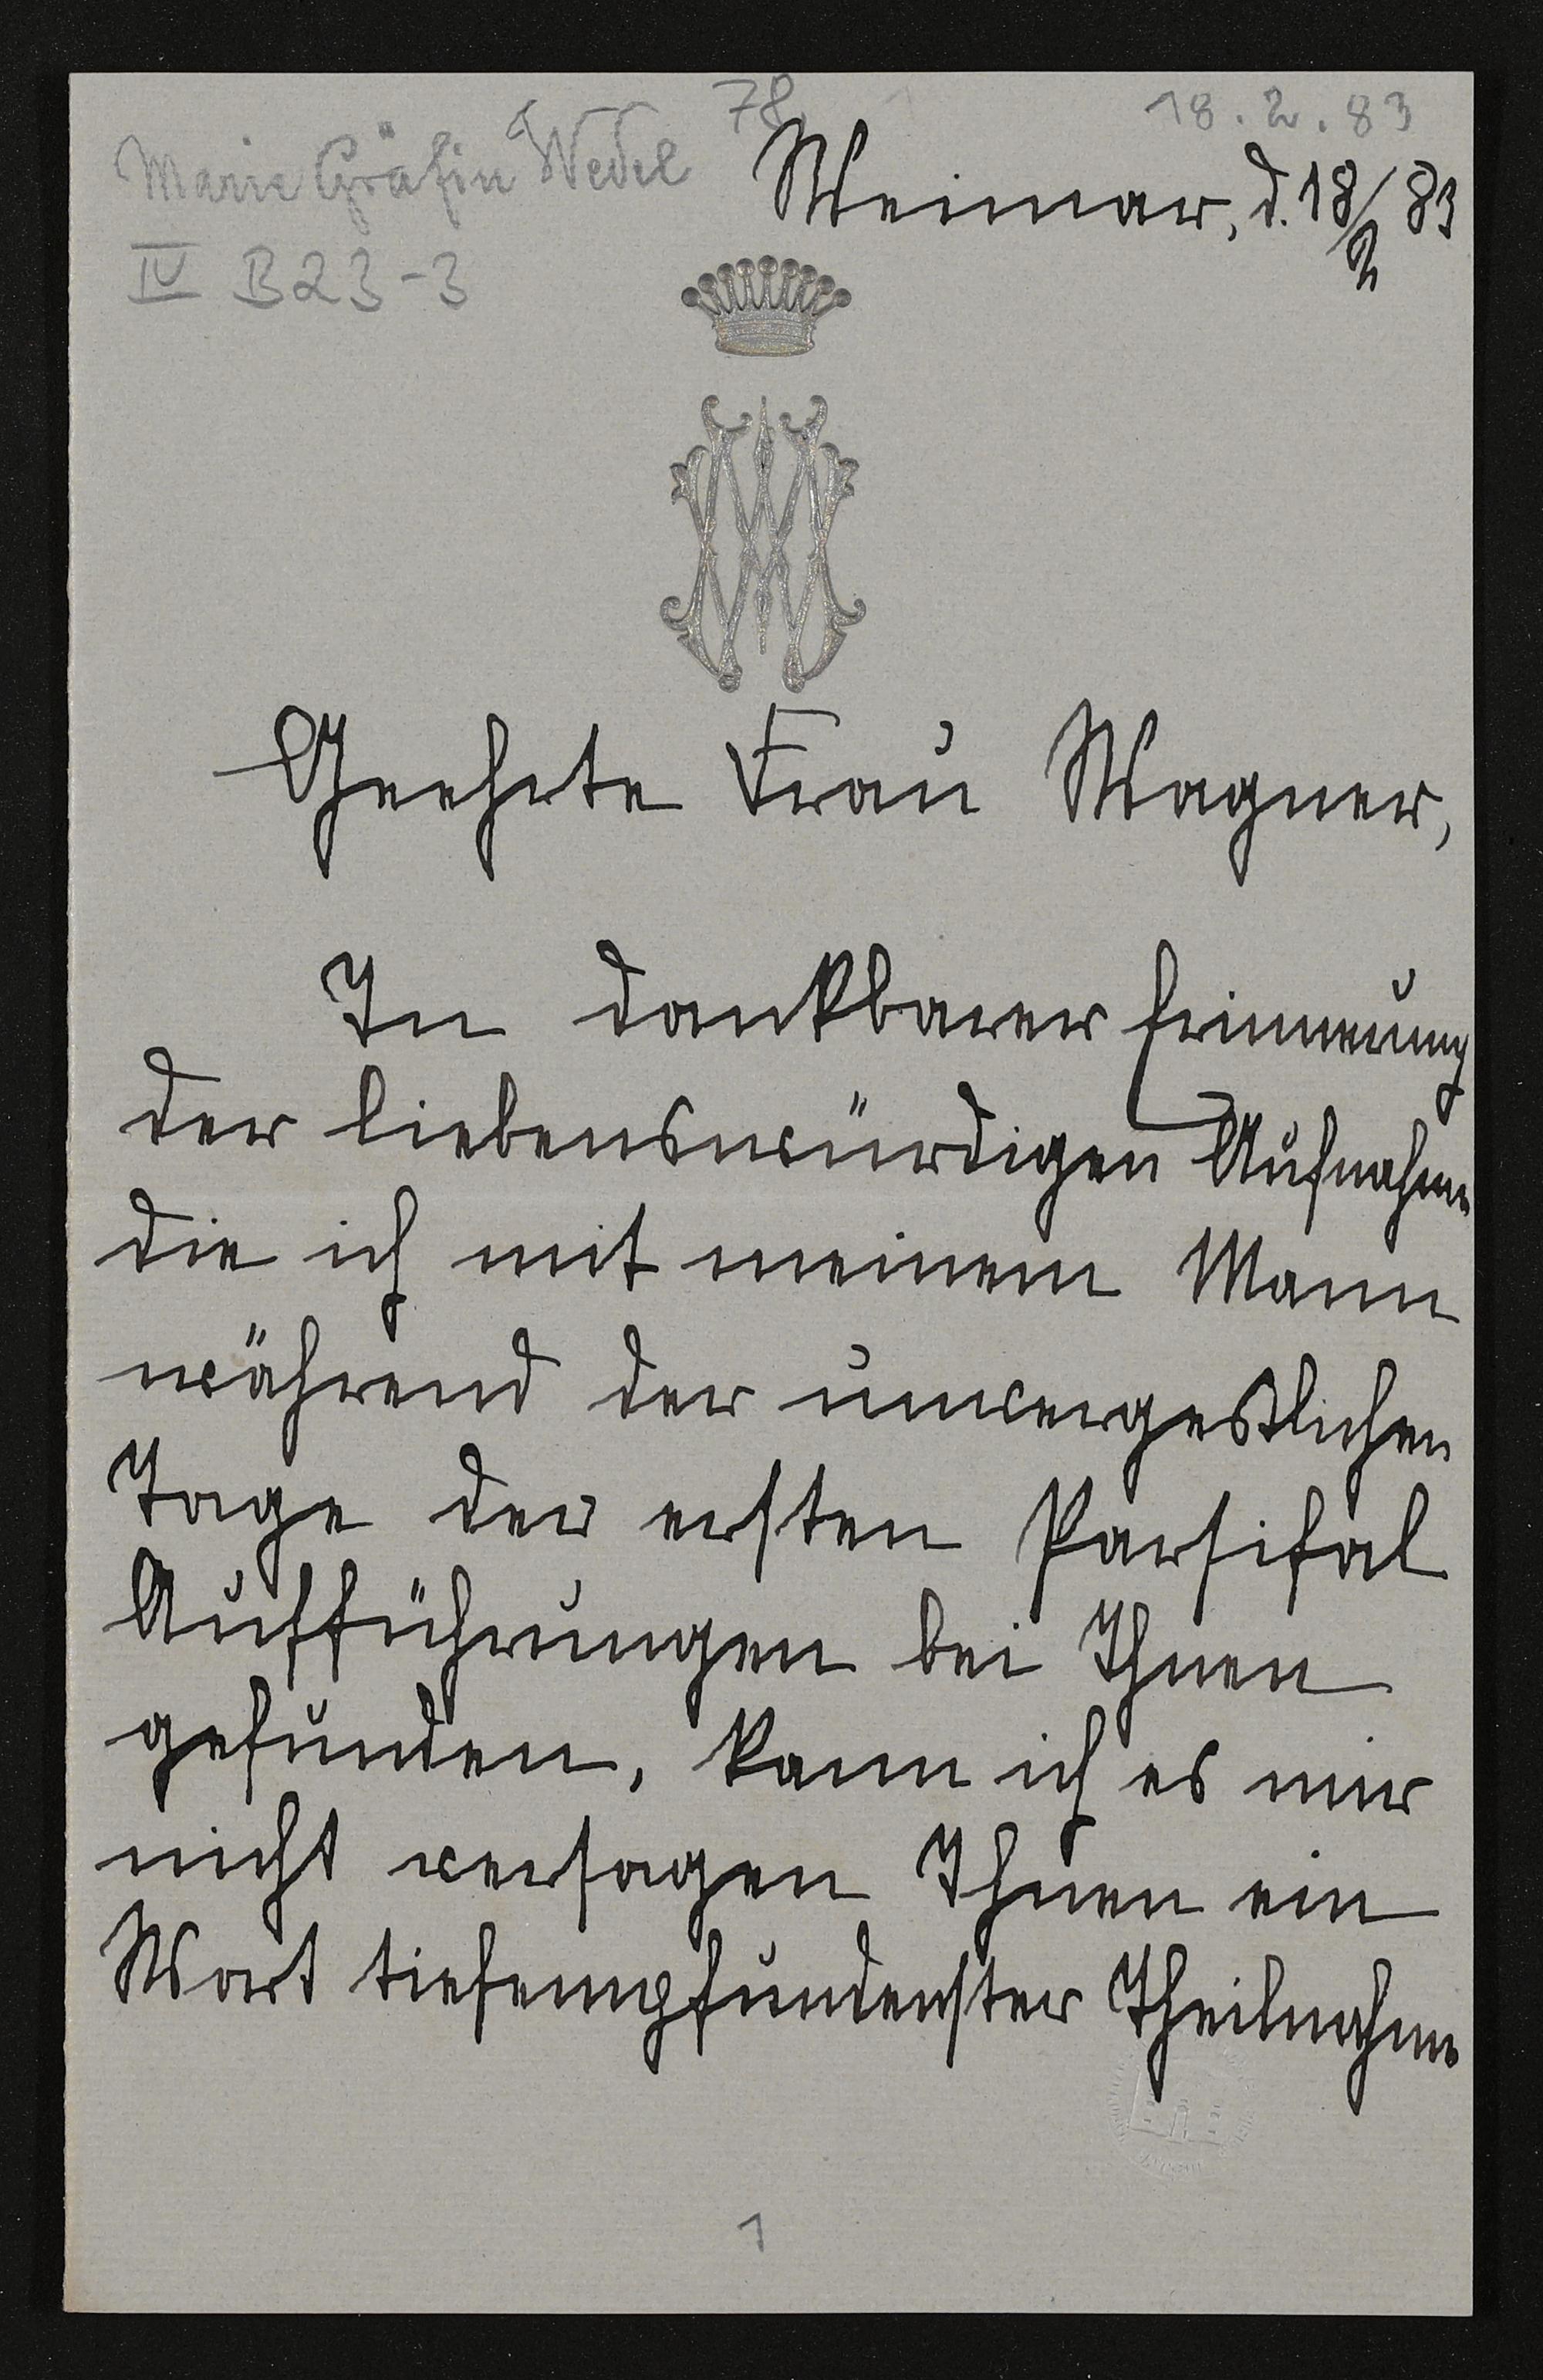 78.
18.2.83
Marie Gräfin Wedel
Weimar, d. 18/2 83
IV B23-3
Geehrte Frau Wagner,
In dankbarer Erinnerung
der liebenswürdigen Aufnahme
die ich mit meinem Mann
während der unvergeßlichen
Tage der ersten Parsifal
Aufführungen bei Ihnen
gefunden, kann ich es mir
nicht versagen Ihnen ein
Wort tiefempfundenster Theilnahme
1